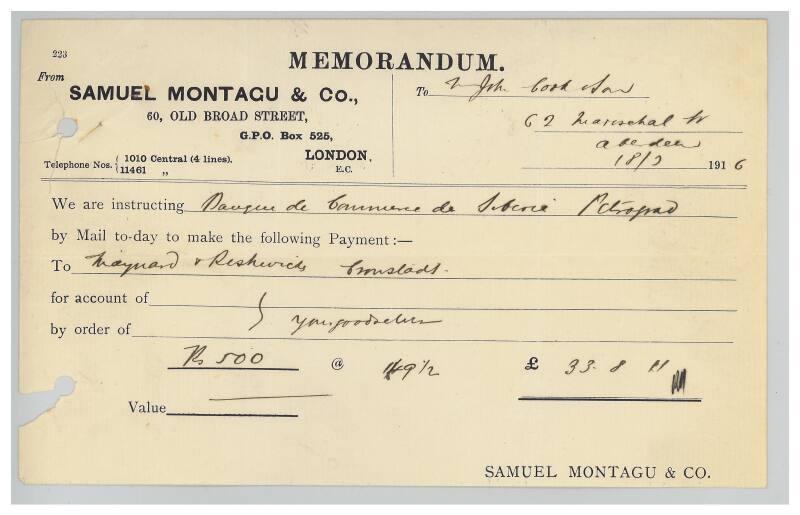 223
MEMORANDUM.
From
SAMUEL MONTAGU & Co.,
60, OLD BROAD STREET,
G.P.O. Box 525,
LONDON,
E.C.
Telephone Nos. { 1010 Central (4 lines).
11461 „
To John Cook & Son
62 Marischal St
Aberdeen
18/3 1916
We are instructing Banque de Commerce de Siberie Petrograd
by Mail to-day to make the following Payment :—
To Maynard & Cronstadt.
for account of
by order of } yourgoodselves
Rs 500 @ 149½ £ 33. 8. 11
Value
SAMUEL MONTAGU & CO.